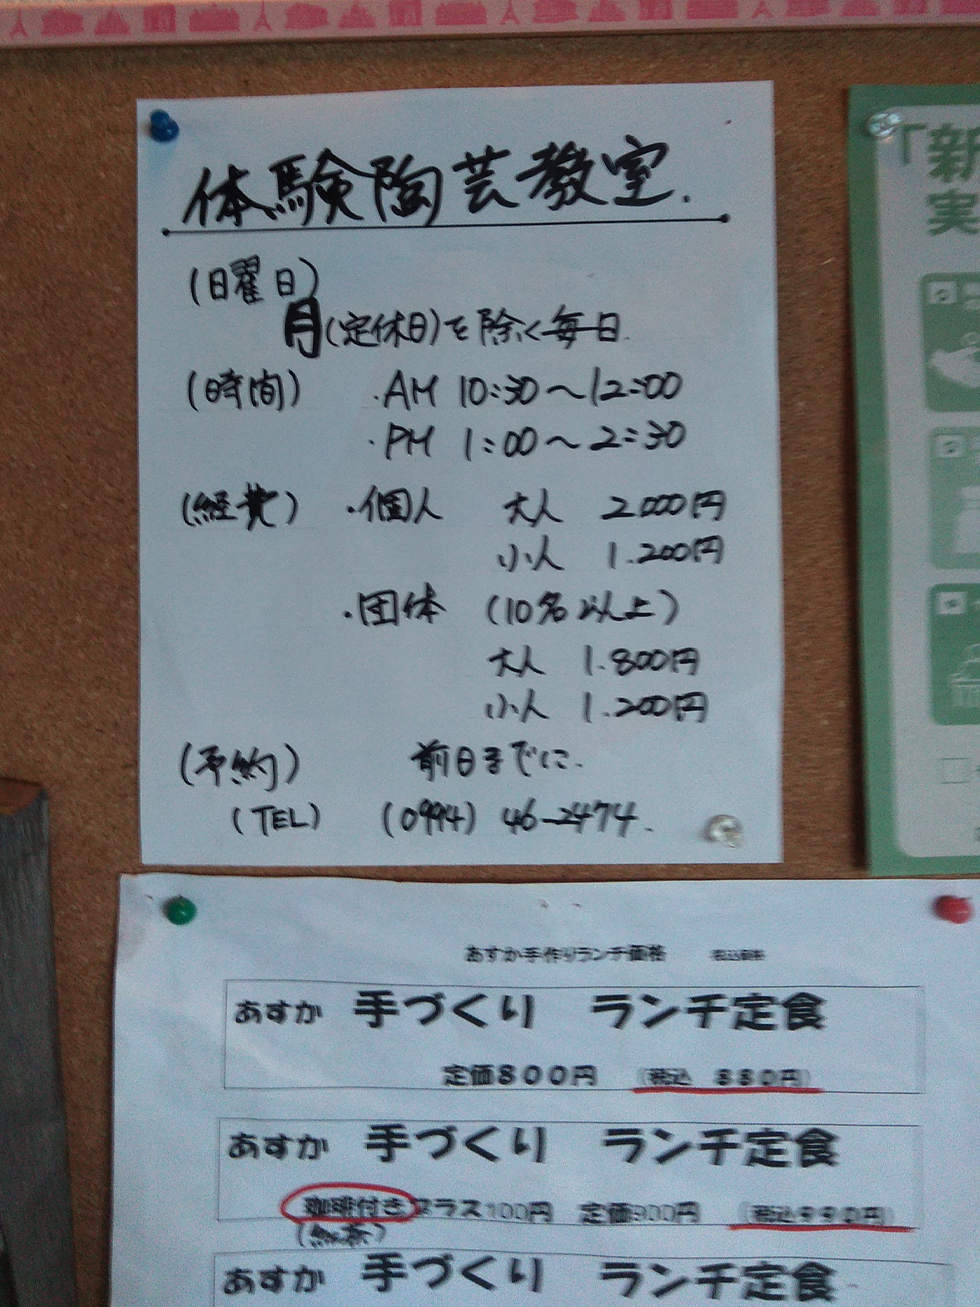 体験陶芸教室.
(日曜日)
月(定休日)を除く毎日.
(時間) ・AM 10:30〜12:00
・PM 1:00〜2:30
(経費) ・個人 大人 2000円
小人 1.200円
・団体 (10名以上)
大人 1.800円
小人 1.200円
(予約) 前日までに.
(TEL) (0994) 46-2474.
「新
実
あすか手作りランチ価格 税込価格
あすか 手づくり ランチ定食
定価800円 (税込 880円)
あすか 手づくり ランチ定食
珈琲付きプラス100円 定価900円 (税込990円)
(紅茶)
あすか 手づくり ランチ定食